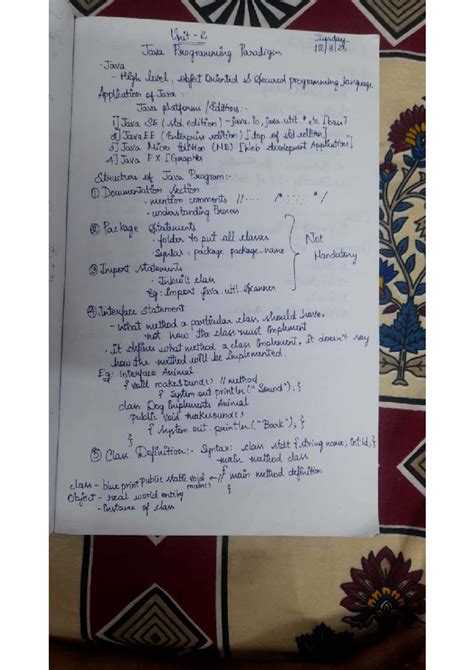 Unit - 2
Tuesday
12/8/25
Java Programming Paradigm
· Java
- High level, object Oriented & secured programming language
Application of Java:
Java platforms / Editions:-
1] Java SE (std edition) - java.io, java.util. * etc [base]
2] Java EE (Enterprise edition) [top of std edition]
3] Java Micro Edition (ME) [Web development Application]
4] Java FX [Graphics
Structure of Java Program:-
① Documentation section
· mention comments //.... /* ::: */
· understanding Process
② Package Statements
· folder to put all classes
Syntax: package package-name
Not
Mandatory
③ Import statements
· Inbuilt class
Eg: Import java.util.Scanner
④ Interface Statement
- What method a particular class should have.
not how the class must implement
· It defines what method a class implement. It doesn't say
how the method will be implemented.
Eg: interface Animal
{ void makesound() // method
{ System out println ("Sound"). }
class Dog Implements Animal
public void makesound()
{ system out. println ("Bark"), }
⑤ Class Definition:- Syntax: class stdt { string name; int id, }
main method class
class - blue print public static void main() // main method definition
{
Object - real world entity
- instance of class